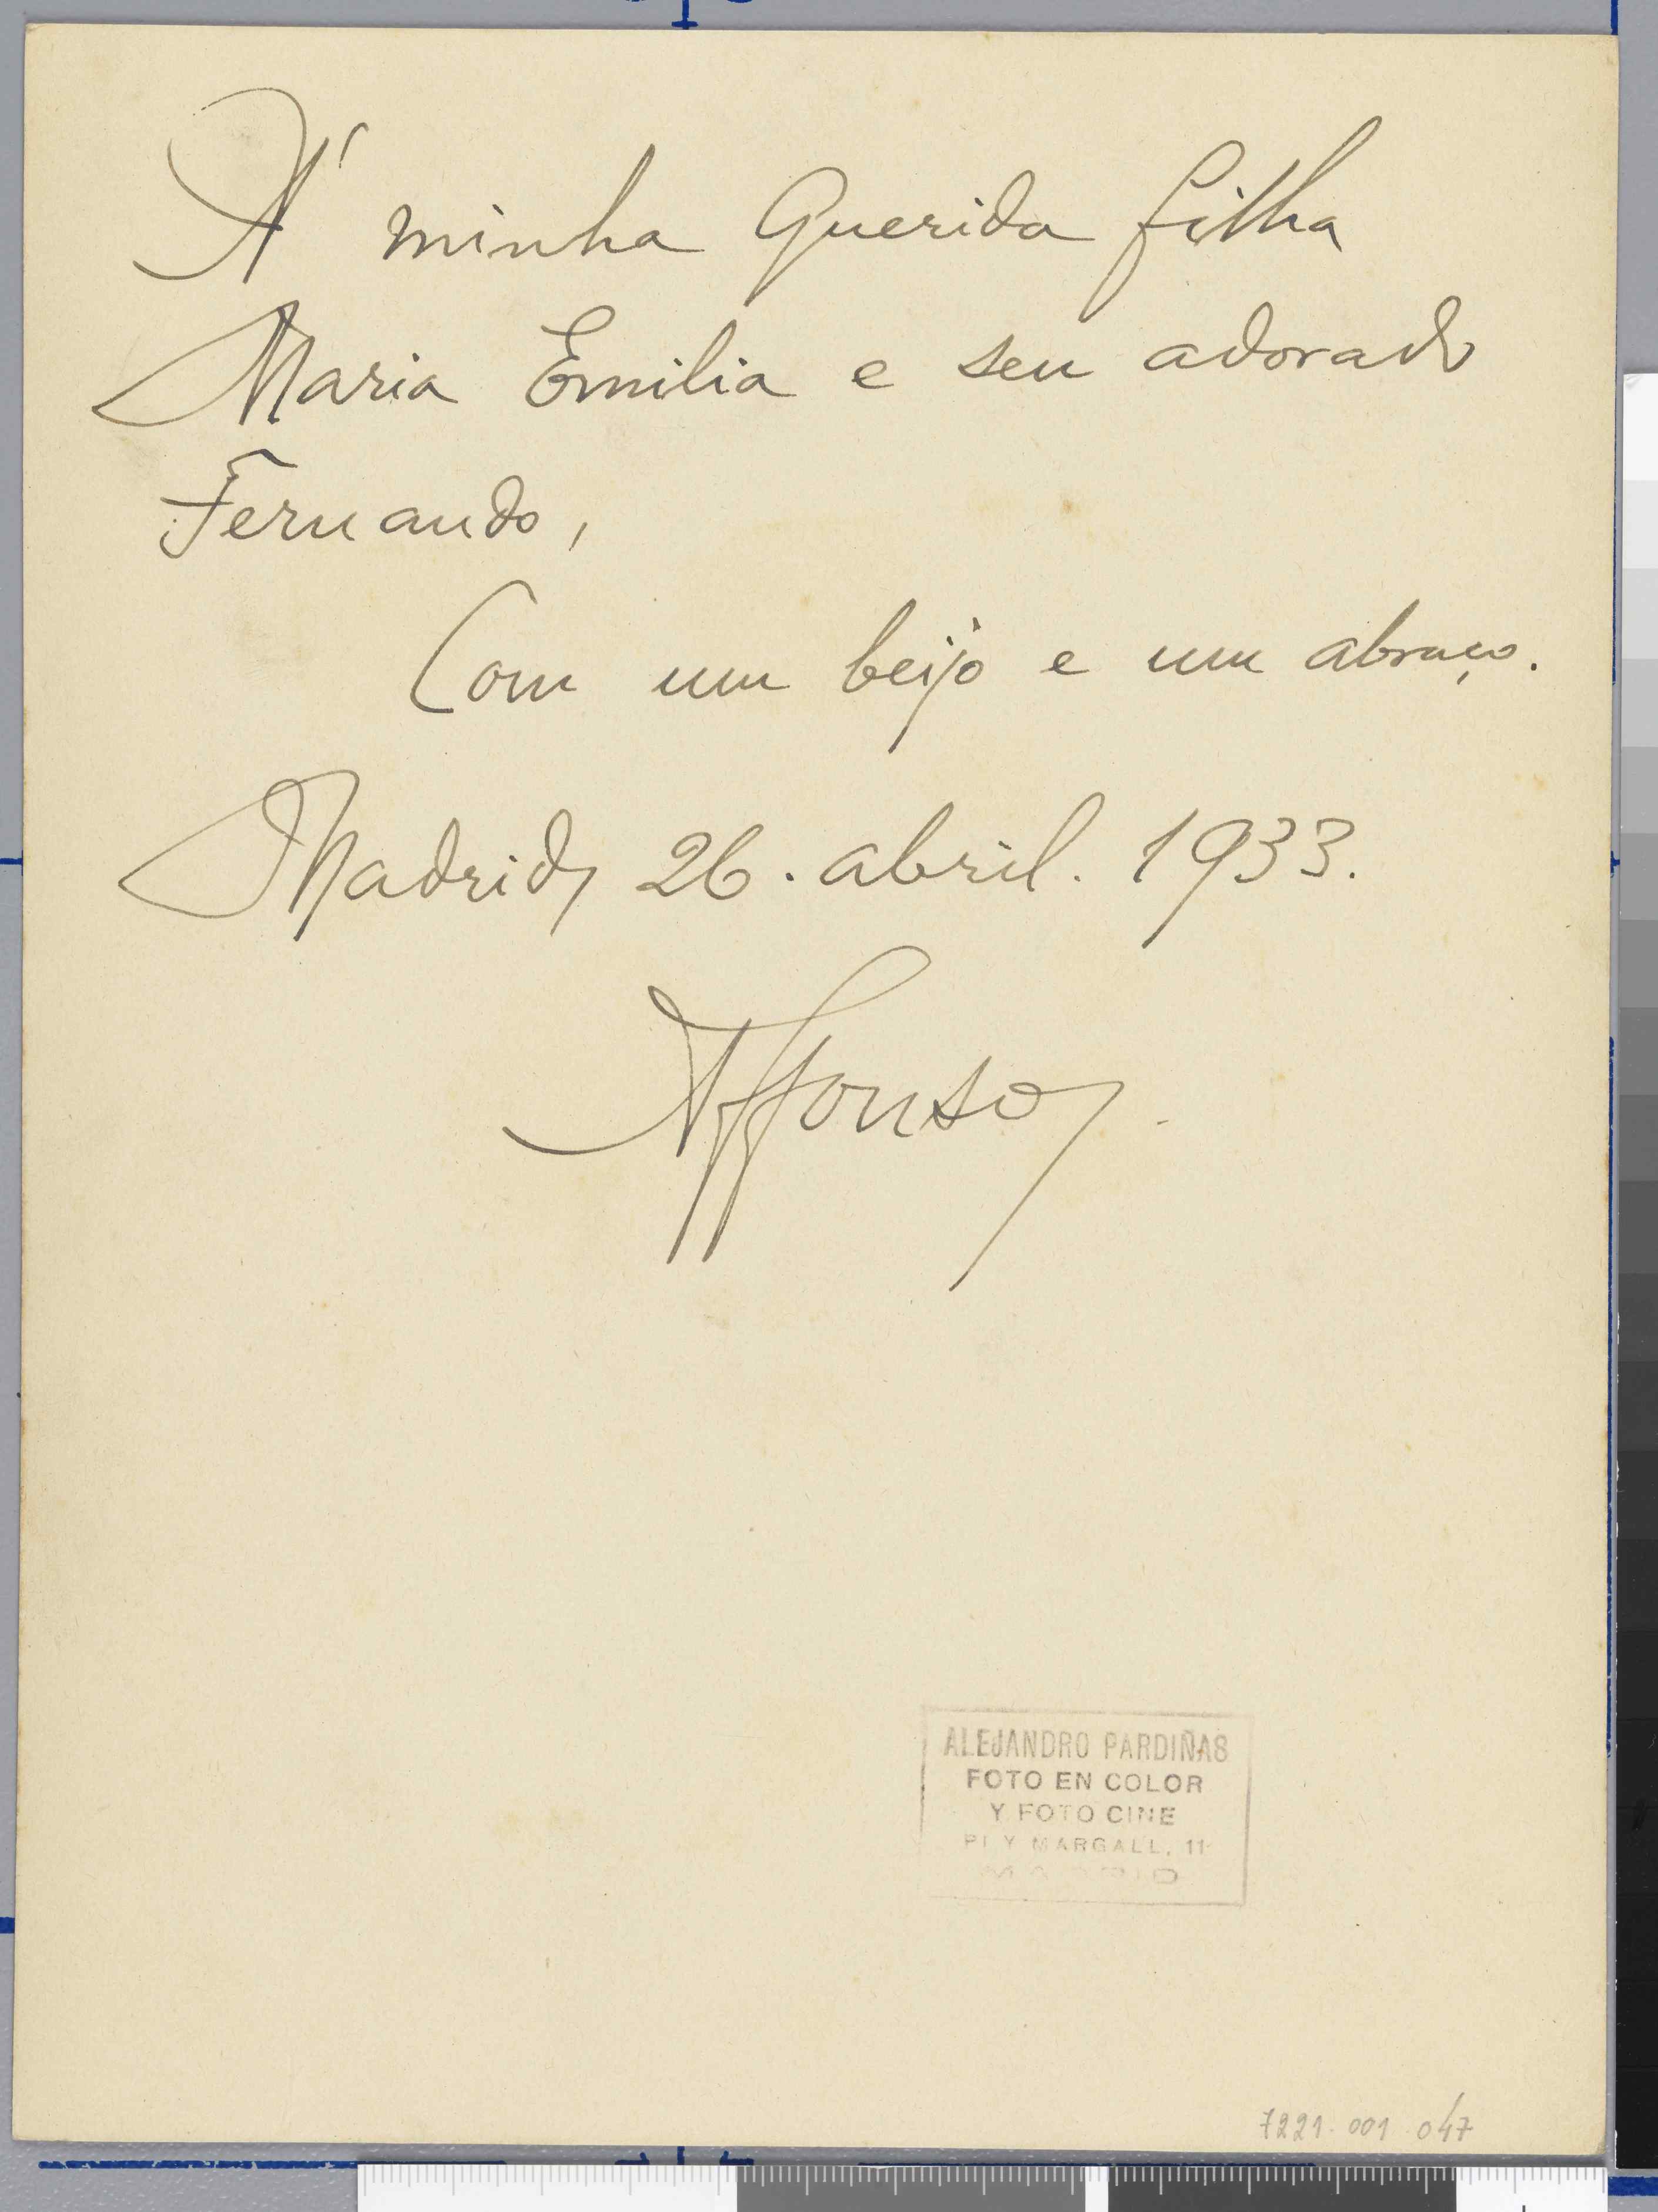 Á minha Querida filha
Maria Emilia e seu adorado
Fernando,
Com um beijo e um abraço.
Madrid, 26. abril. 1933.
Affonso.
ALEJANDRO PARDIÑAS
FOTO EN COLOR
Y FOTO CINE
PI Y MARGALL, 11
MADRID
7221.001 047